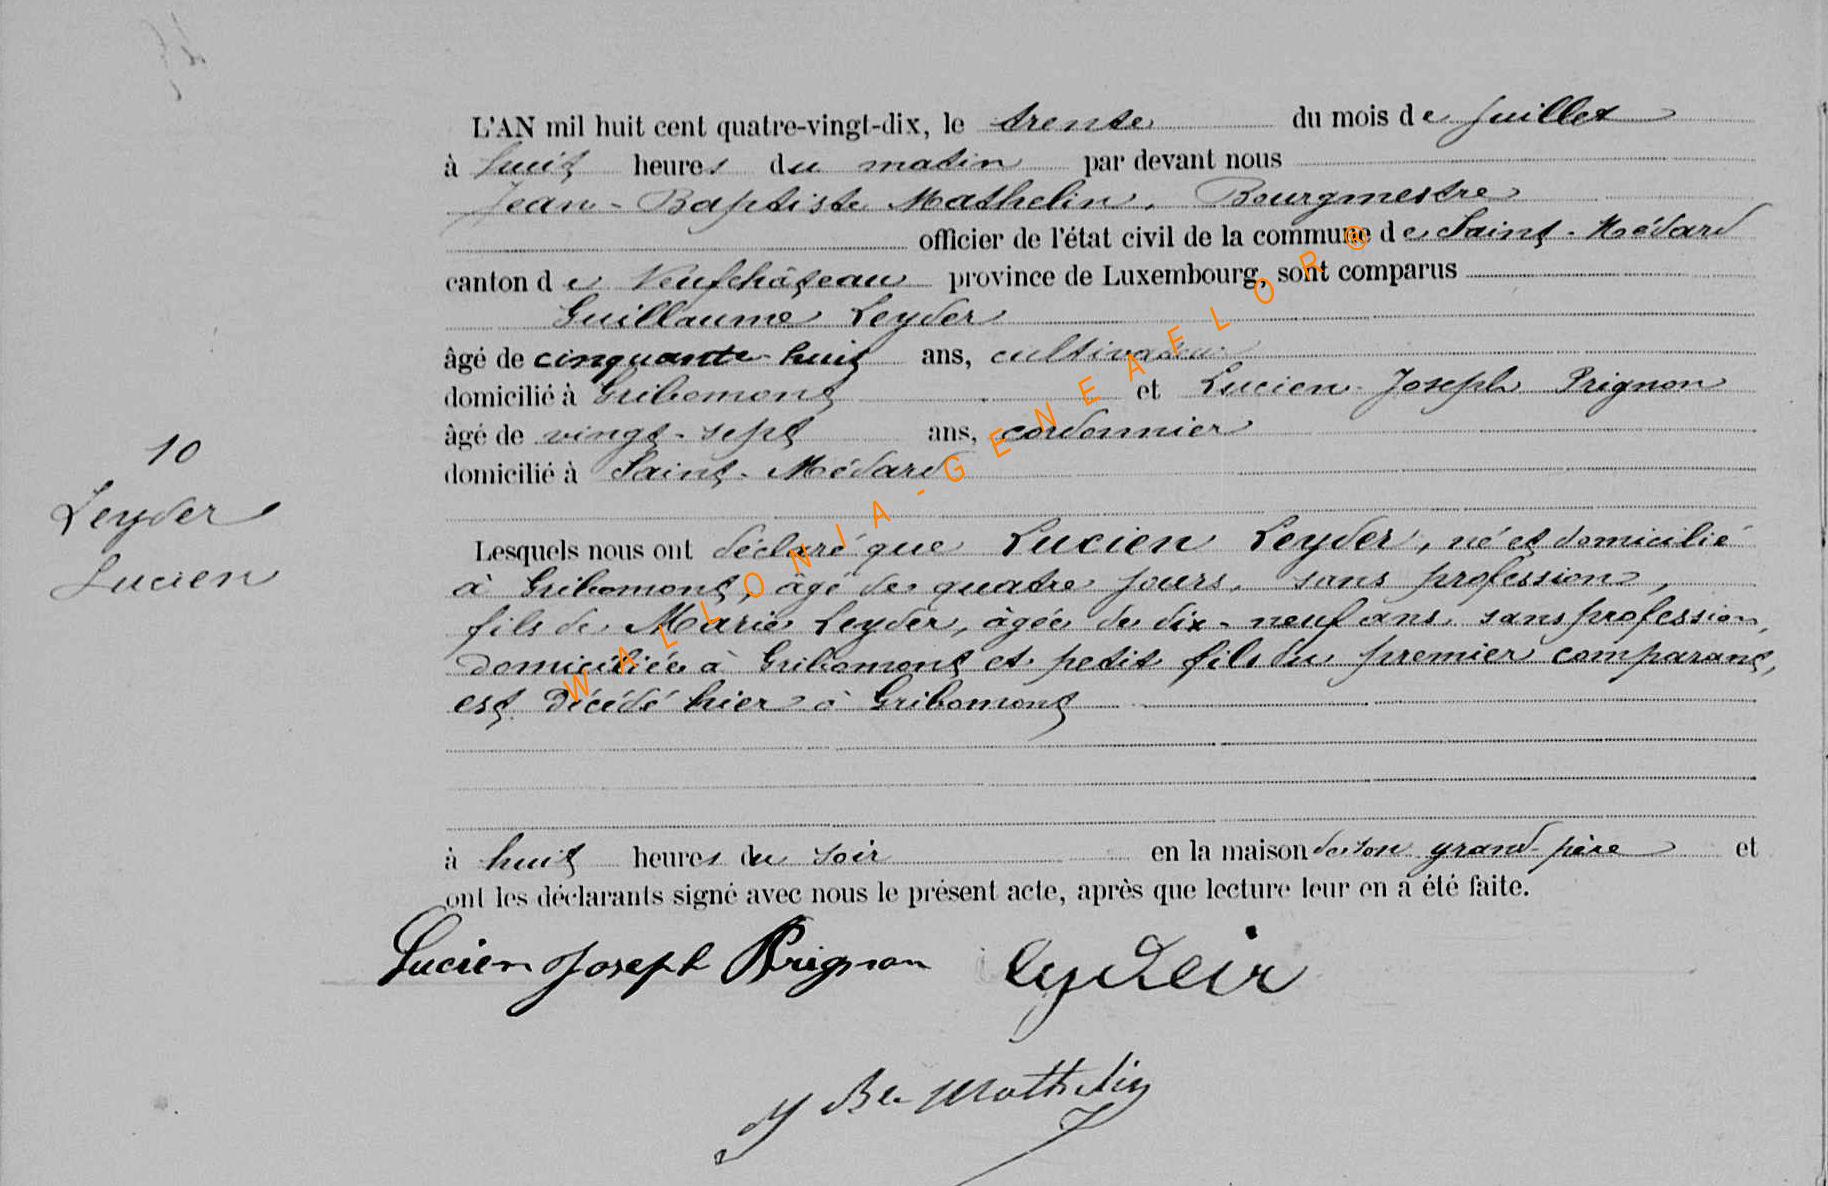 L'AN mil huit cent quatre-vingt-dix, le trente du mois de Juillet
à huit heures du matin par devant nous
Jean-Baptiste Mathelin, Bourgmestre
officier de l'état civil de la commune de Saint-Médard
canton de Neufchâteau province de Luxembourg, sont comparus
Guillaume Leyder
âgé de cinquante-huit ans, cultivateur
domicilié à Gribomont et Lucien-Joseph Prignon
âgé de vingt-sept ans, cordonnier
domicilié à Saint-Médard
10
Leyder
Lucien
Lesquels nous ont déclaré que Lucien Leyder, né et domicilié
à Gribomont, âgé de quatre jours, sans profession,
fils de Marie Leyder, âgée de dix-neuf ans, sans profession,
domiciliée à Gribomont et petit fils du premier comparant,
est décédé hier à Gribomont
à huit heures du soir en la maison de son grand-père et
ont les déclarants signé avec nous le présent acte, après que lecture leur en a été faite.
Lucien Joseph Prignon Leydeir
J Bte Mathelin
WALLONIA-GENEAFLOR®